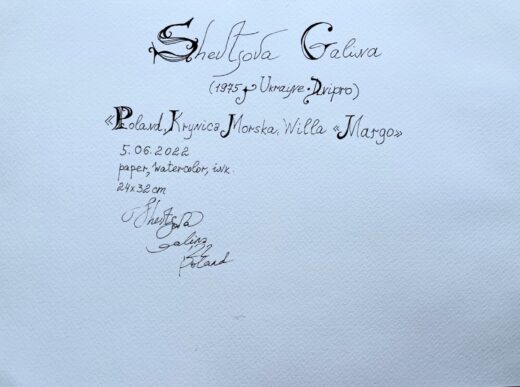 Shevtsova Galina
(1975, Ukrayne • Dnipro)
«Poland, Krynica Morska, Willa «Margo»
5.06.2022
paper, watercolor, ink.
24x32 cm
Shevtsova
Galina
Poland